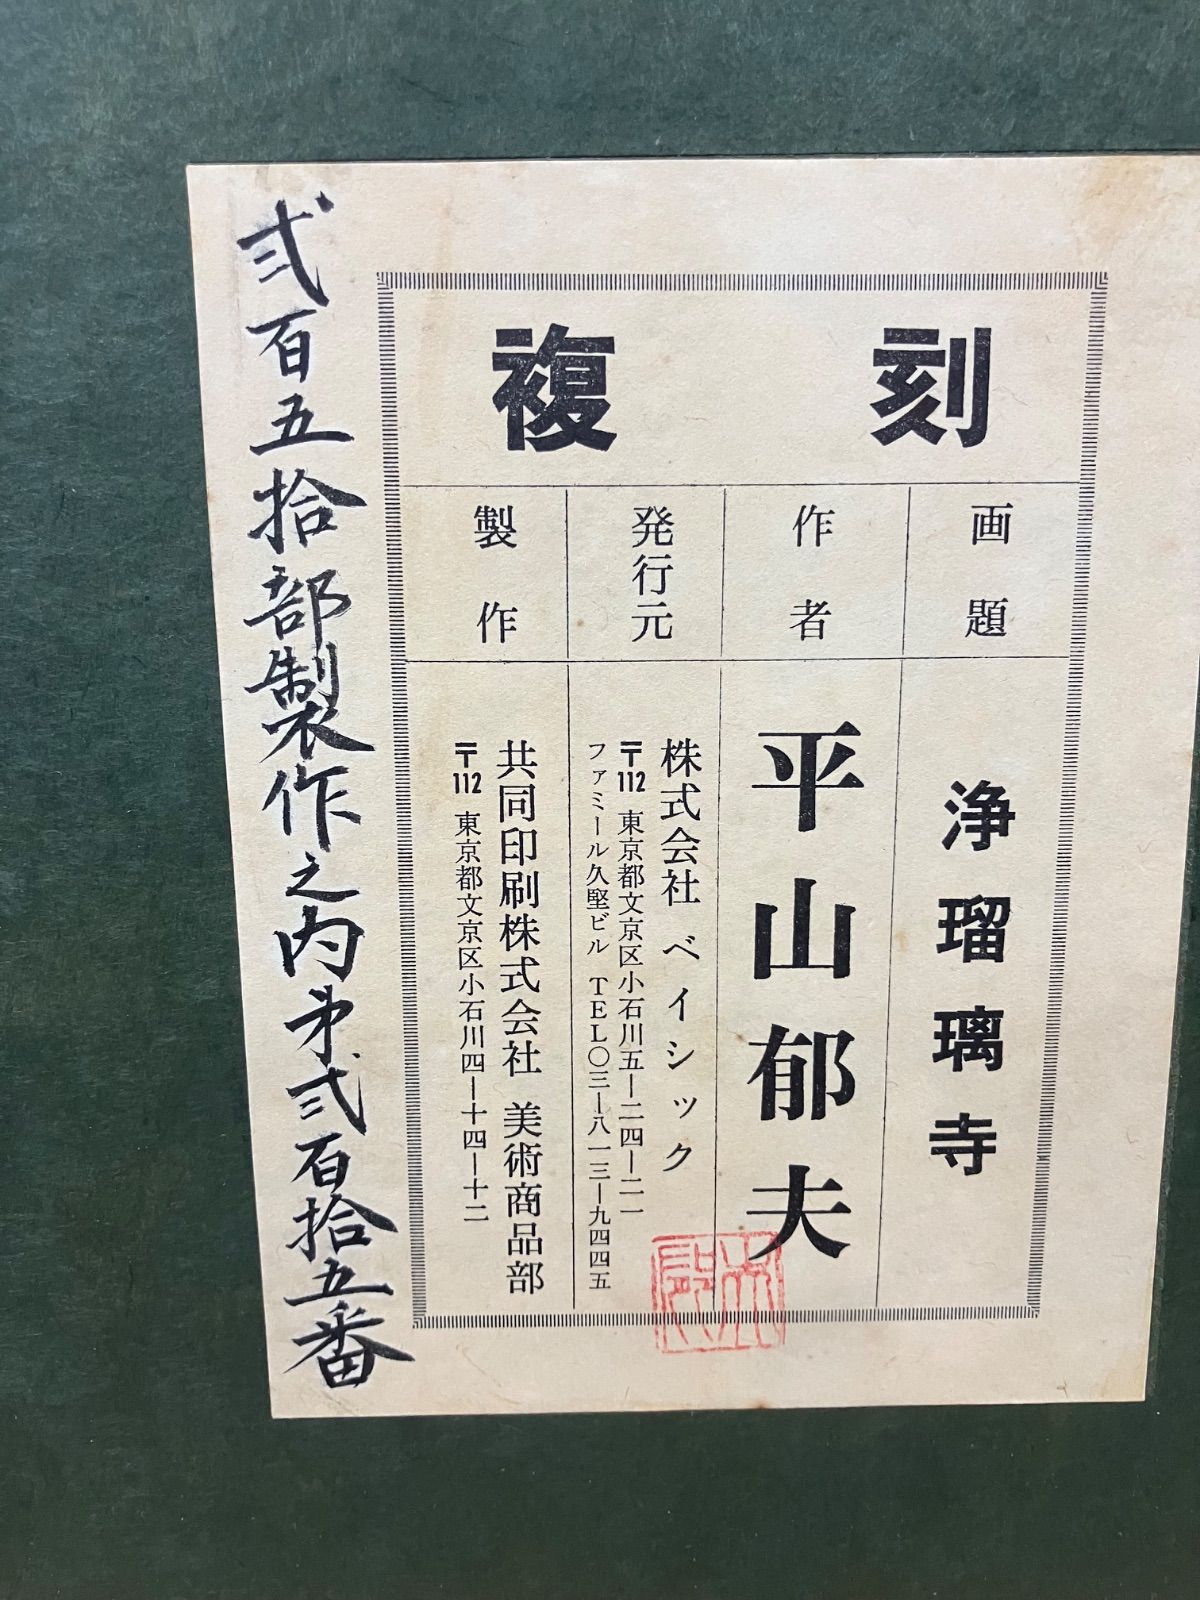 複刻
画題
浄瑠璃寺
作者
平山郁夫
発行元
株式会社 ベイシック
〒112 東京都文京区小石川五ー二四ー二一
ファミール久堅ビル TEL〇三ー八一三ー九四四五
製作
共同印刷株式会社 美術商品部
〒112 東京都文京区小石川四ー十四ー十二
弐百五拾部製作之内第弐百拾五番